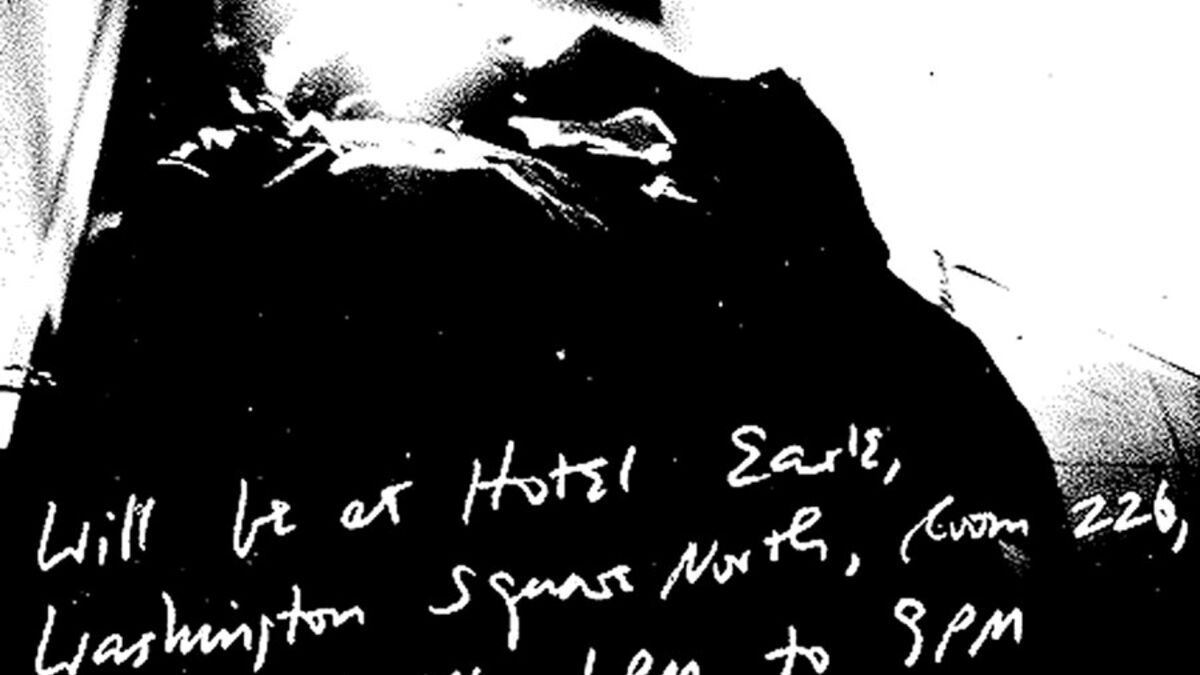 Will be at Hotel Earle,
Washington Square North, Room 226,
to 9PM